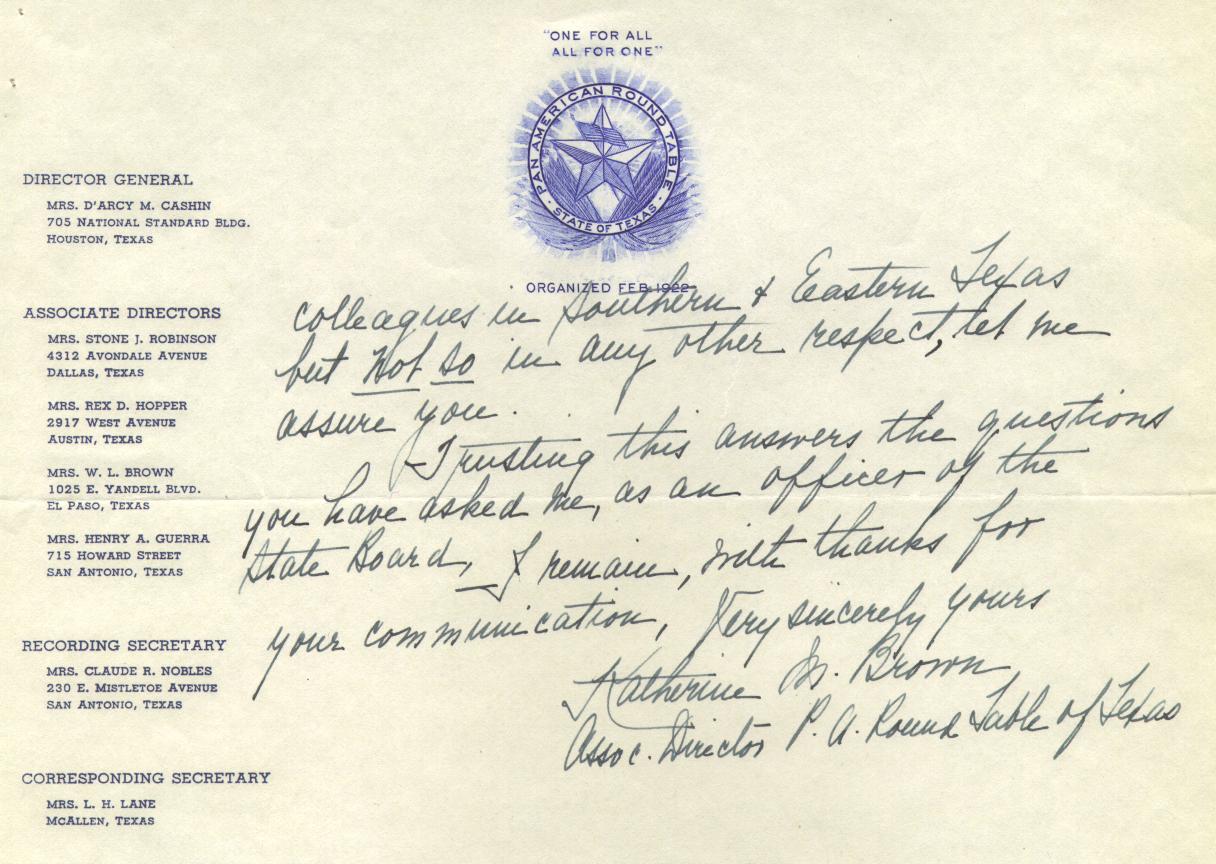 "ONE FOR ALL
ALL FOR ONE"
PAN AMERICAN ROUND TABLE
STATE OF TEXAS
ORGANIZED FEB. 1922
DIRECTOR GENERAL
MRS. D'ARCY M. CASHIN
705 NATIONAL STANDARD BLDG.
HOUSTON, TEXAS
ASSOCIATE DIRECTORS
MRS. STONE J. ROBINSON
4312 AVONDALE AVENUE
DALLAS, TEXAS
MRS. REX D. HOPPER
2917 WEST AVENUE
AUSTIN, TEXAS
MRS. W. L. BROWN
1025 E. YANDELL BLVD.
EL PASO, TEXAS
MRS. HENRY A. GUERRA
715 HOWARD STREET
SAN ANTONIO, TEXAS
RECORDING SECRETARY
MRS. CLAUDE R. NOBLES
230 E. MISTLETOE AVENUE
SAN ANTONIO, TEXAS
CORRESPONDING SECRETARY
MRS. L. H. LANE
MCALLEN, TEXAS
colleagues in Southern & Eastern Texas
but not so in any other respect, let me
assure you.
Trusting this answers the questions
you have asked me, as an officer of the
State Board, I remain, with thanks for
your communication, Very sincerely yours
Katherine M. Brown
Assoc. Director P. A. Round Table of Texas